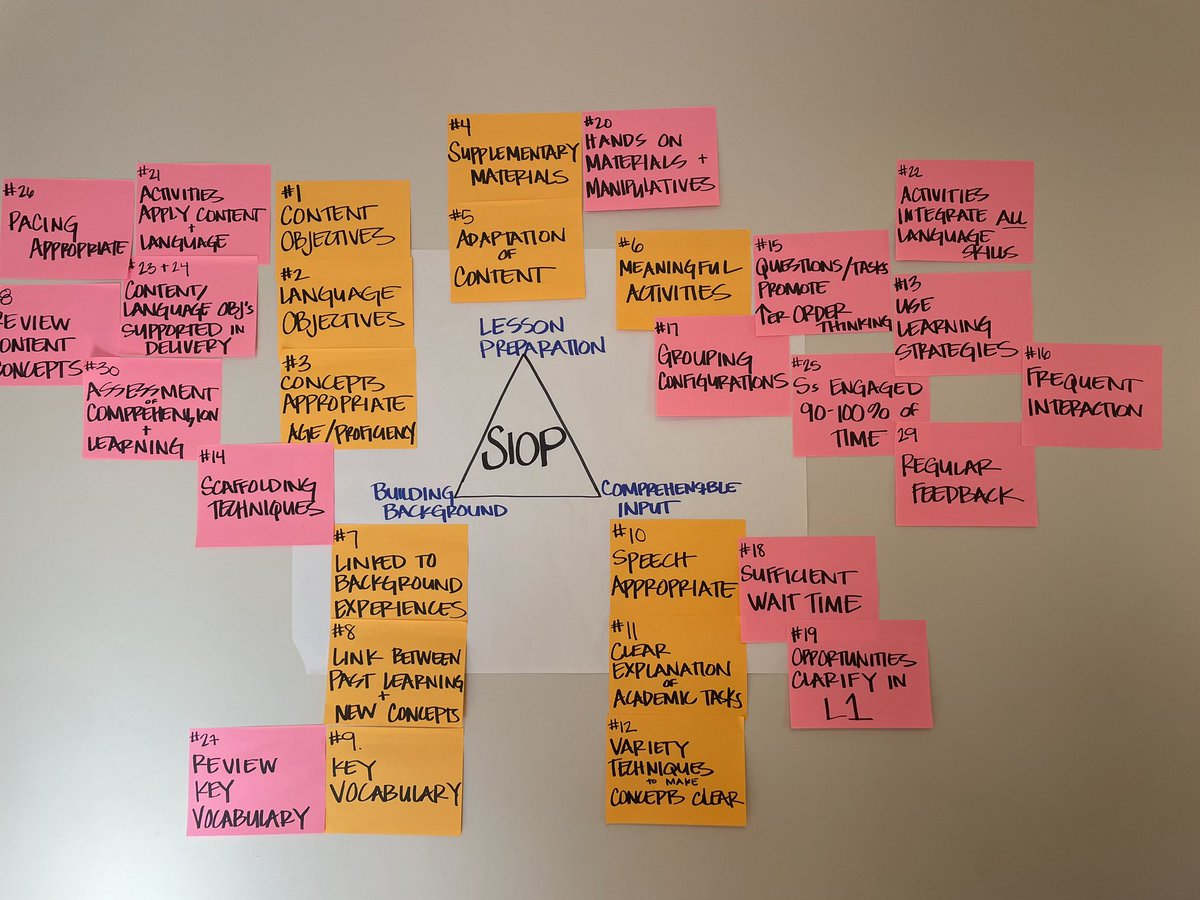 #26
PACING
APPROPRIATE
#21
ACTIVITIES
APPLY CONTENT
+
LANGUAGE
#23+24
CONTENT/
LANGUAGE OBJ'S
SUPPORTED IN
DELIVERY
8
EVIEW
ONTENT
ONCEPTS
#30
ASSESSMENT
OF
COMPREHENSION
+
LEARNING
#14
SCAFFOLDING
TECHNIQUES
#1
CONTENT
OBJECTIVES
#2
LANGUAGE
OBJECTIVES
#3
CONCEPTS
APPROPRIATE
AGE/PROFICIENCY
#4
SUPPLEMENTARY
MATERIALS
#20
HANDS ON
MATERIALS +
MANIPULATIVES
#5
ADAPTATION
OF
CONTENT
#6
MEANINGFUL
ACTIVITIES
#15
QUESTIONS/TASKS
PROMOTE
↑ER ORDER
THINKING
#17
GROUPING
CONFIGURATIONS
#22
ACTIVITIES
INTEGRATE ALL
LANGUAGE
SKILLS
#13
USE
LEARNING
STRATEGIES
#25
Ss ENGAGED
90-100% OF
TIME
#16
FREQUENT
INTERACTION
29
REGULAR
FEEDBACK
LESSON
PREPARATION
SIOP
BUILDING
BACKGROUND
COMPREHENSIBLE
INPUT
#7
LINKED TO
BACKGROUND
EXPERIENCES
#8
LINK BETWEEN
PAST LEARNING
+
NEW CONCEPTS
#27
REVIEW
KEY
VOCABULARY
#9.
KEY
VOCABULARY
#10
SPEECH
APPROPRIATE
#18
SUFFICIENT
WAIT TIME
#11
CLEAR
EXPLANATION
OF
ACADEMIC TASKS
#19
OPPORTUNITIES
CLARIFY IN
L1
#12
VARIETY
TECHNIQUES
TO MAKE
CONCEPTS CLEAR